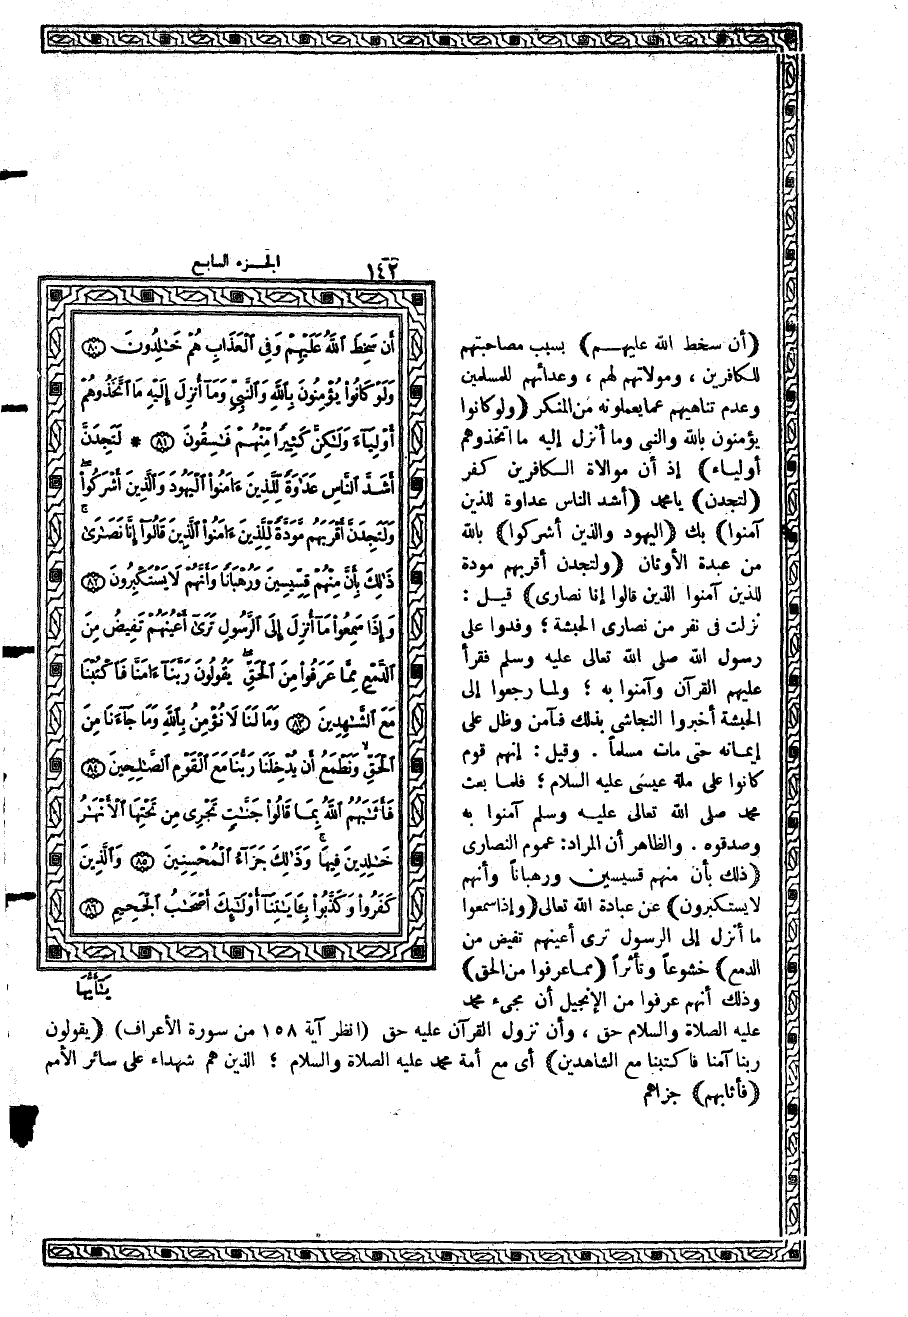 ١٤٢
الجزء السابع
أَن سَخِطَ ٱللَّهُ عَلَيْهِمْ وَفِي ٱلْعَذَابِ هُمْ خَٰلِدُونَ ٨٠
وَلَوْ كَانُوا۟ يُؤْمِنُونَ بِٱللَّهِ وَٱلنَّبِيِّ وَمَآ أُنزِلَ إِلَيْهِ مَا ٱتَّخَذُوهُمْ
أَوْلِيَآءَ وَلَٰكِنَّ كَثِيرًا مِّنْهُمْ فَٰسِقُونَ ٨١ * لَتَجِدَنَّ
أَشَدَّ ٱلنَّاسِ عَدَٰوَةً لِّلَّذِينَ ءَامَنُوا۟ ٱلْيَهُودَ وَٱلَّذِينَ أَشْرَكُوا۟ۖ
وَلَتَجِدَنَّ أَقْرَبَهُم مَّوَدَّةً لِّلَّذِينَ ءَامَنُوا۟ ٱلَّذِينَ قَالُوٓا۟ إِنَّا نَصَٰرَىٰۚ
ذَٰلِكَ بِأَنَّ مِنْهُمْ قِسِّيسِينَ وَرُهْبَانًا وَأَنَّهُمْ لَا يَسْتَكْبِرُونَ ٨٢
وَإِذَا سَمِعُوا۟ مَآ أُنزِلَ إِلَى ٱلرَّسُولِ تَرَىٰٓ أَعْيُنَهُمْ تَفِيضُ مِنَ
ٱلدَّمْعِ مِمَّا عَرَفُوا۟ مِنَ ٱلْحَقِّۖ يَقُولُونَ رَبَّنَآ ءَامَنَّا فَٱكْتُبْنَا
مَعَ ٱلشَّٰهِدِينَ ٨٣ وَمَا لَنَا لَا نُؤْمِنُ بِٱللَّهِ وَمَا جَآءَنَا مِنَ
ٱلْحَقِّ وَنَطْمَعُ أَن يُدْخِلَنَا رَبُّنَا مَعَ ٱلْقَوْمِ ٱلصَّٰلِحِينَ ٨٤
فَأَثَٰبَهُمُ ٱللَّهُ بِمَا قَالُوا۟ جَنَّٰتٍ تَجْرِي مِن تَحْتِهَا ٱلْأَنْهَٰرُ
خَٰلِدِينَ فِيهَاۚ وَذَٰلِكَ جَزَآءُ ٱلْمُحْسِنِينَ ٨٥ وَٱلَّذِينَ
كَفَرُوا۟ وَكَذَّبُوا۟ بِـَٔايَٰتِنَآ أُو۟لَٰٓئِكَ أَصْحَٰبُ ٱلْجَحِيمِ ٨٦
يَٰٓأَيُّهَا
(أن سخط الله عليهم) بسبب مصاحبتهم
للكافرين ، ومولاتهم لهم ، وعدائهم للمسلمين
وعدم تناهيهم عما يعملونه من المنكر (ولو كانوا
يؤمنون بالله والنبى وما أنزل إليه ما اتخذوهم
أولياء) إذ أن موالاة الكافرين كفر
(لتجدن) يا محمد (أشد الناس عداوة للذين
آمنوا) بك (اليهود والذين أشركوا) بالله
من عبدة الأوثان (ولتجدن أقربهم مودة
للذين آمنوا الذين قالوا إنا نصارى) قيل :
نزلت فى نفر من نصارى الحبشة ؛ وفدوا على
رسول الله صلى الله تعالى عليه وسلم فقرأ
عليهم القرآن وآمنوا به ؛ ولما رجعوا إلى
الحبشة أخبروا النجاشى بذلك فآمن وظل على
إيمانه حتى مات مسلماً . وقيل : إنهم قوم
كانوا على ملة عيسى عليه السلام ؛ فلما بعث
محمد صلى الله تعالى عليه وسلم آمنوا به
وصدقوه . والظاهر أن المراد : عموم النصارى
(ذلك بأن منهم قسيسين ورهباناً وأنهم
لا يستكبرون) عن عبادة الله تعالى (وإذا سمعوا
ما أنزل إلى الرسول ترى أعينهم تفيض من
الدمع) خشوعاً وتأثراً (مما عرفوا من الحق)
وذلك أنهم عرفوا من الإنجيل أن مجىء محمد
عليه الصلاة والسلام حق ، وأن نزول القرآن عليه حق (انظر آية ١٥٨ من سورة الأعراف) (يقولون
ربنا آمنا فاكتبنا مع الشاهدين) أى مع أمة محمد عليه الصلاة والسلام ؛ الذين هم شهداء على سائر الأمم
(فأثابهم) جزاهم